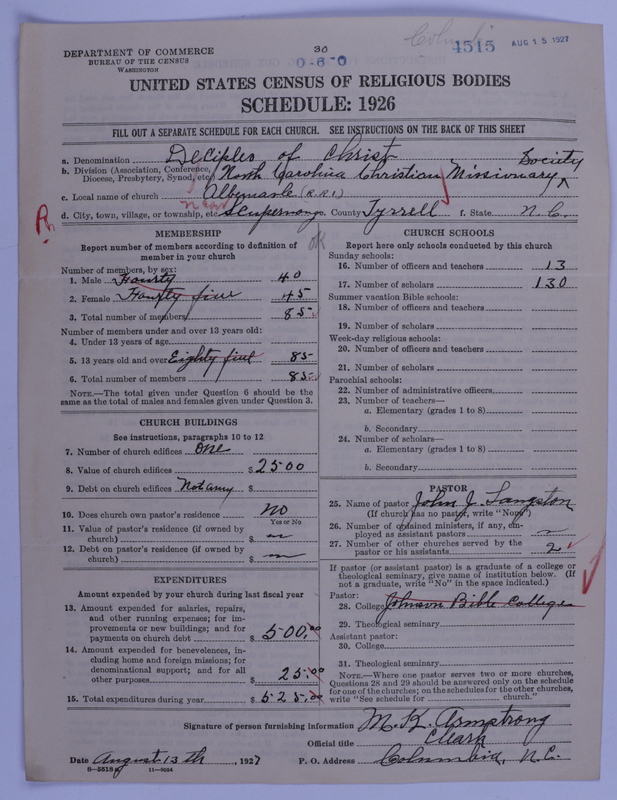 Columbia
4515 AUG 15 1927
30
0-6-0
DEPARTMENT OF COMMERCE
BUREAU OF THE CENSUS
WASHINGTON
UNITED STATES CENSUS OF RELIGIOUS BODIES
SCHEDULE: 1926
FILL OUT A SEPARATE SCHEDULE FOR EACH CHURCH. SEE INSTRUCTIONS ON THE BACK OF THIS SHEET
a. Denomination Deciples of Christ
b. Division (Association, Conference, Diocese, Presbytery, Synod, etc.) North Carolina Christian Missionary Society
c. Local name of church Albemarle (R.R.1)
d. City, town, village, or township, etc. near Scuppernong County Tyrrell f. State N.C.
MEMBERSHIP
Report number of members according to definition of
member in your church
Number of members, by sex:
1. Male Fourty 40
2. Female Fourty five 45
3. Total number of members 85
Number of members under and over 13 years old:
4. Under 13 years of age
5. 13 years old and over Eighty five 85
6. Total number of members 85
NOTE.—The total given under Question 6 should be the
same as the total of males and females given under Question 3.
CHURCH BUILDINGS
See instructions, paragraphs 10 to 12
7. Number of church edifices One
8. Value of church edifices $2500
9. Debt on church edifices Not any $
10. Does church own pastor's residence No
Yes or No
11. Value of pastor's residence (if owned by
church) $
12. Debt on pastor's residence (if owned by
church) $
EXPENDITURES
Amount expended by your church during last fiscal year
13. Amount expended for salaries, repairs,
and other running expenses; for im-
provements or new buildings; and for
payments on church debt $ 500.00
14. Amount expended for benevolences, in-
cluding home and foreign missions; for
denominational support; and for all
other purposes $ 25.00
15. Total expenditures during year $ 525.00
ok
CHURCH SCHOOLS
Report here only schools conducted by this church
Sunday schools:
16. Number of officers and teachers 13
17. Number of scholars 130
Summer vacation Bible schools:
18. Number of officers and teachers
19. Number of scholars
Week-day religious schools:
20. Number of officers and teachers
21. Number of scholars
Parochial schools:
22. Number of administrative officers
23. Number of teachers—
a. Elementary (grades 1 to 8)
b. Secondary
24. Number of scholars—
a. Elementary (grades 1 to 8)
b. Secondary
PASTOR
25. Name of pastor John J. Langston
(If church has no pastor, write "None")
26. Number of ordained ministers, if any, em-
ployed as assistant pastors
27. Number of other churches served by the
pastor or his assistants 2
If pastor (or assistant pastor) is a graduate of a college or
theological seminary, give name of institution below. (If
not a graduate, write "No" in the space indicated.)
Pastor:
28. College Johnson Bible College
29. Theological seminary
Assistant pastor:
30. College
31. Theological seminary
NOTE.—Where one pastor serves two or more churches,
Questions 28 and 29 should be answered only on the schedule
for one of the churches; on the schedules for the other churches,
write "See schedule for church."
Signature of person furnishing information M. K. Armstrong
Official title Cleark
Date August 13th, 1927 P. O. Address Columbia, N.C.
8-5518 11-9024